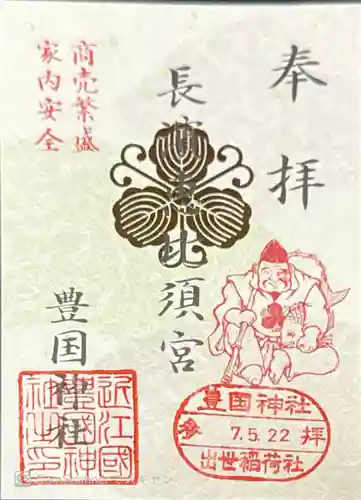 奉拝
長濱恵比須宮
豊国神社
商売繁盛
家内安全
近江国
豊国神
社之印
豊国神社
参 7.5.22 拝
出世稲荷社